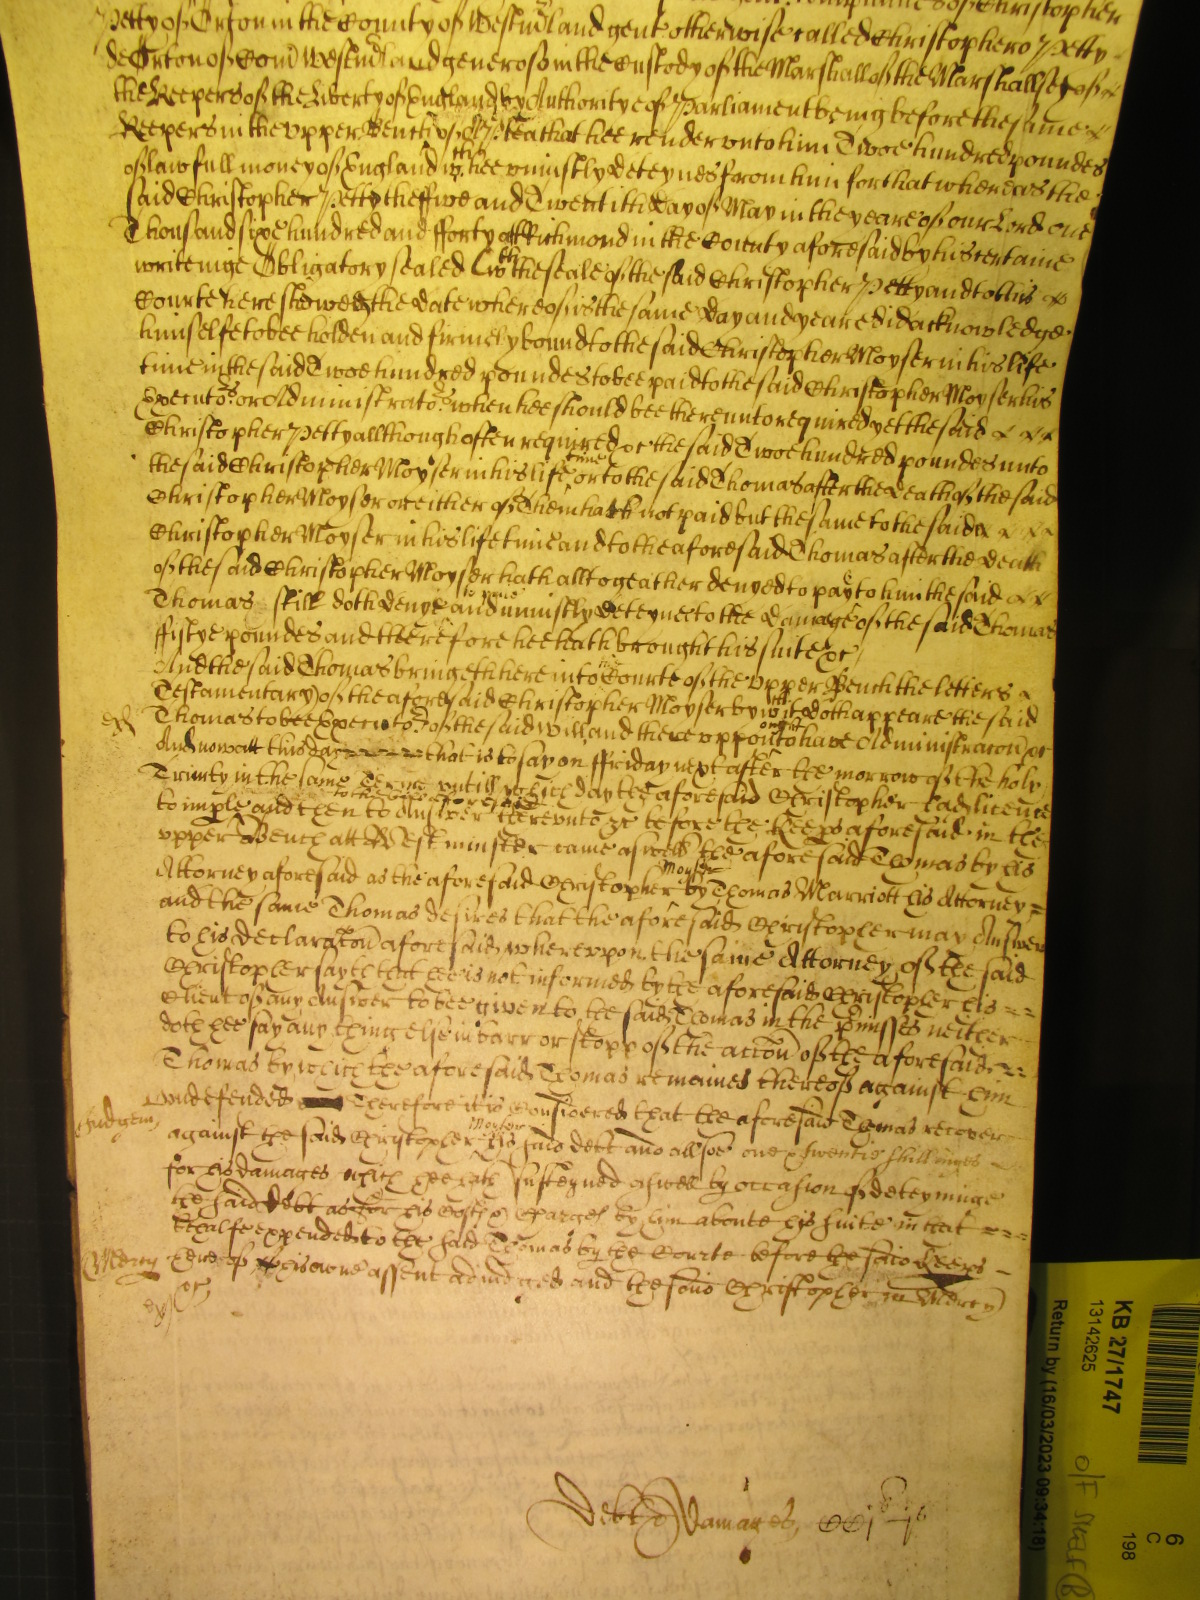 Petty of Orton in the County of Westmland gent otherwise called Christophero Petty
de Orton of Com Westmland generoso in the Custody of the Marshall of the Marshallsey of
the Keepers of the Liberty of England by Authoritye of Parliament being before the same
Keepers in the upper Bench of a Plea that hee render unto him Twoe hundred poundes
of lawfull money of England wch hee uniustly deteynes from him for that whereas the
said Christopher Petty the ffive and Twentith day of May in the yeare of our Lord one
Thousand sixe hundred and fforty att Richmond in the County aforesaid by his certaine
writeinge Obligatory sealed wth the seale of the said Christopher Petty and to this
Courte here shewed the date whereof is the same day and yeare did acknowledge
himselfe to bee holden and firmely bound to the said Christopher Moyser in his life
time in the said Twoe hundred poundes to bee paid to the said Christopher Moyser his
Executors or Administrators when hee should bee thereunto required yet the said
Christopher Petty allthough often required &c the said Twoe hundred poundes unto
the said Christopher Moyser in his life time or to the said Thomas after the death of the said
Christopher Moyser or either of Them hath not paid but the same to the said
Christopher Moyser in his life time and to the aforesaid Thomas after the death
of the said Christopher Moyser hath alltogeather denyed to pay to him the said
Thomas still doth denye to paye and uniustly deteyne to the damage of the said Thomas
ffiftye poundes and therefore hee hath brought his suite &c
And the said Thomas bringeth here into this Courte of the upper Bench the letters
Testamentary of the aforesaid Christopher Moyser by wch itt doth appeare the said
Thomas to bee Executor of the said will and thereuppon ought to have Administracon &c
And now att this day that is to say on ffriday next after the morrow of the holy
Trinity in the same Terme untill which day the aforesaid Christopher had licence
to imple and then to Answer thereunto &c before the Keeps aforesaid in the
upper Bench att Westminster came aswell the aforesaid Thomas by his
Attorney aforesaid as the aforesaid Christopher Moyser by Thomas Marriott his Attorney
and the same Thomas desires that the aforesaid Christopher may Answer
to his declaration aforesaid whereupon the same Attorney of the said
Christopher sayth that hee is not informed by the aforesaid Christopher his
Client of any Answer to bee given to the said Thomas in the pmisses neither
doth hee say any thing else in barr or stopp of the accon of the aforesaid
Thomas by which the aforesaid Thomas remaines thereof against him
Judgem
undefended Therefore it is Considered that the aforesaid Thomas recover
against the said Christopher Moyser his said debt and allsoe one & twentie shillinges
for his damages which hee hath susteyned aswell by occasion of deteyninge
the said debt as for his Costs & Charges by him aboute his suite in that
behalfe expended to the said Thomas by the Courte before the said Keeps
Mercy
here of his owne assent adiudged and the said Christopher in Mercy
Debt & damages
KB 27/1747
13142625
Return by (16/03/2023 09:34:18)
6
C
198